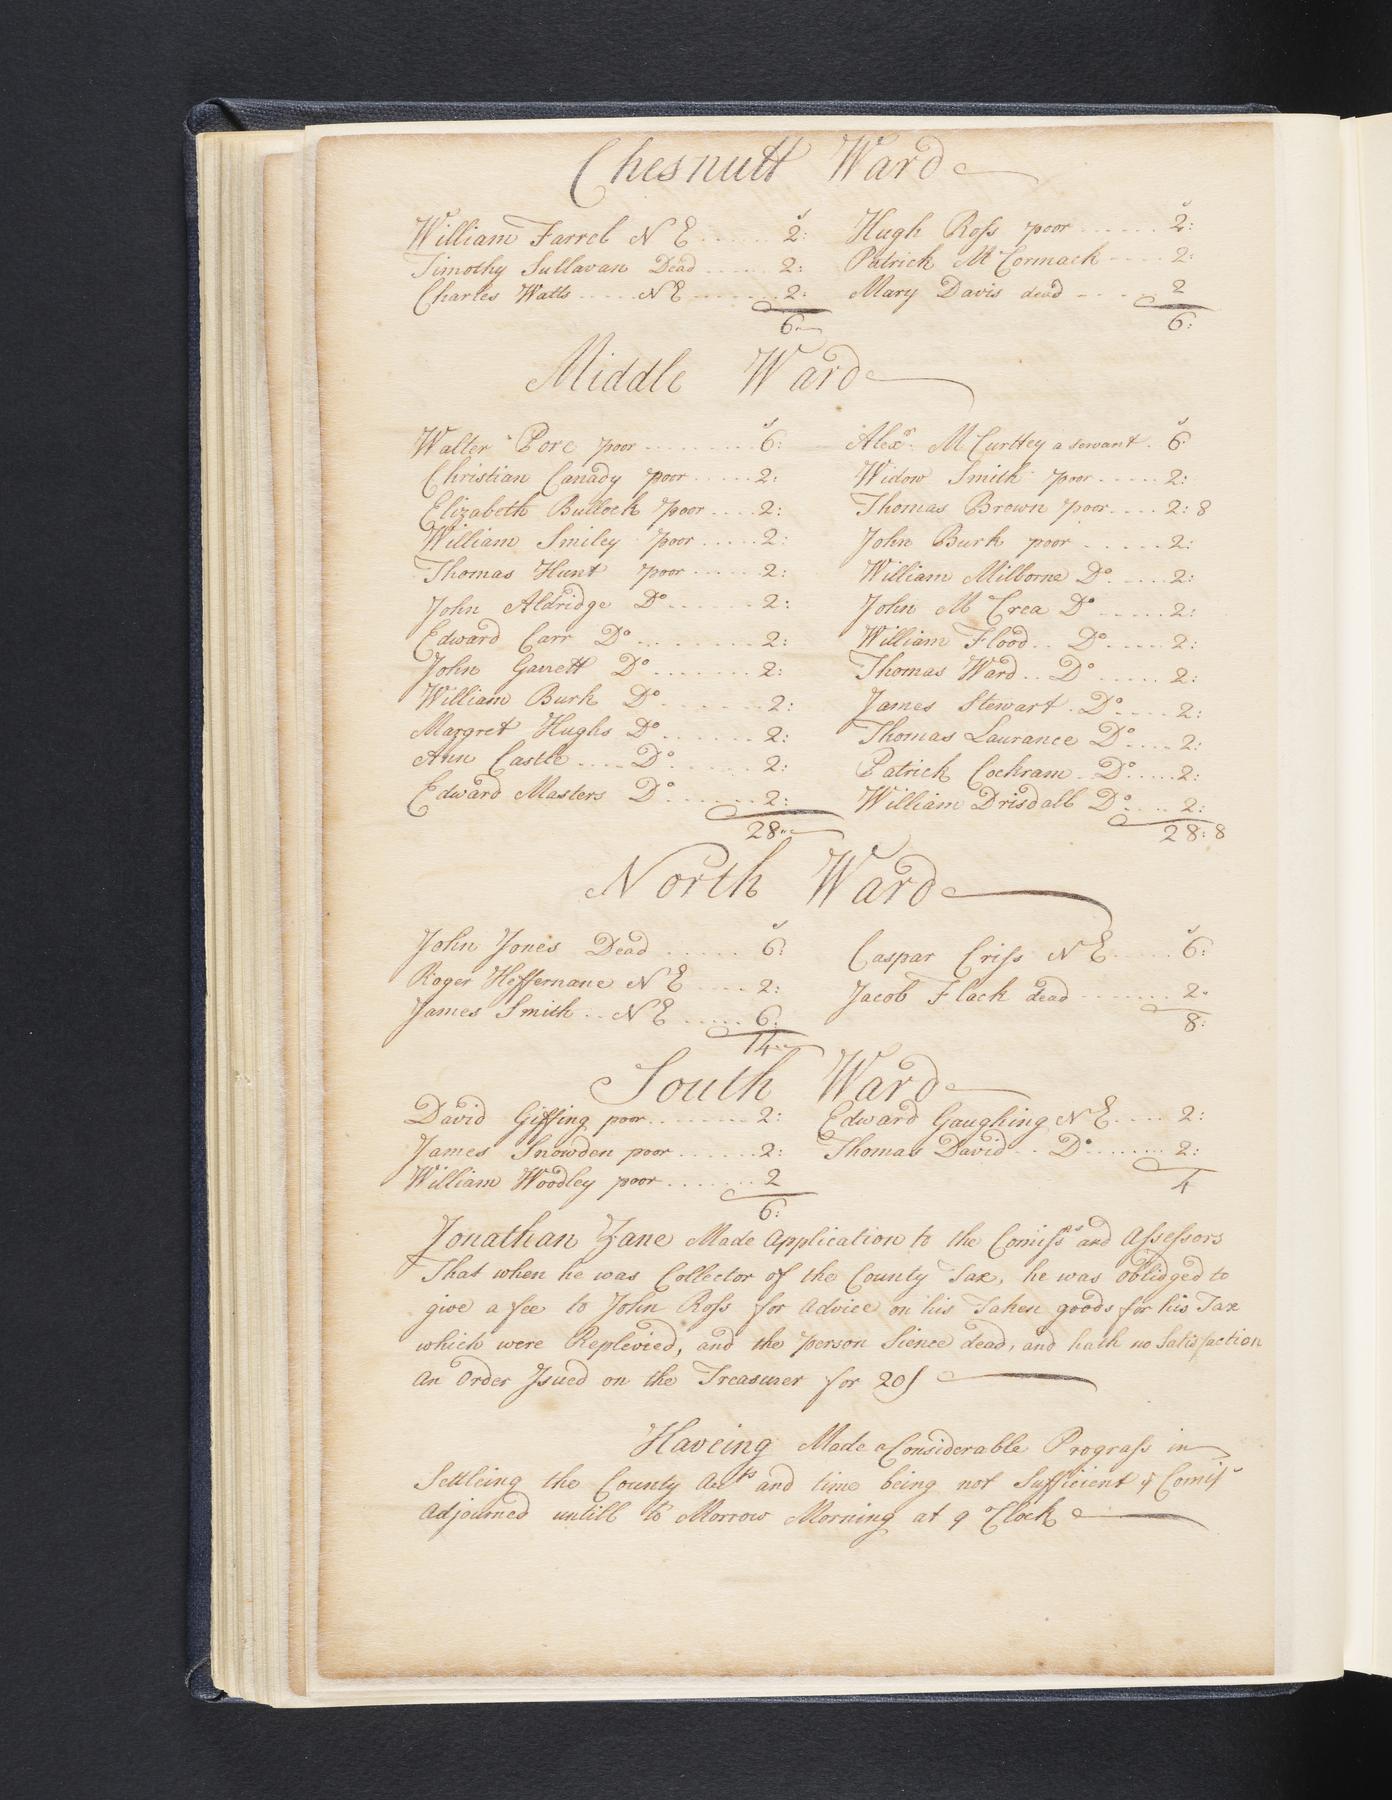 Chesnutt Ward
s s
William Farrel N E ...... 2: Hugh Ross poor ...... 2:
Timothy Sullavan Dead ..... 2: Patrick Mc Cormack .... 2:
Charles Watts ..... N E ...... 2: Mary Davis dead .... 2
6 6:
Middle Ward
s s
Walter Pore poor ......... 6: Alexr. Mc Curttey a servant . 6
Christian Canady poor ..... 2: Widow Smith poor ..... 2:
Elizabeth Bullock poor .... 2: Thomas Brown poor .... 2: 8
William Smiley poor ..... 2: John Burk poor ..... 2:
Thomas Hunt poor ...... 2: William Milborne Do. .... 2:
John Aldridge Do ....... 2: John Mc Crea Do ..... 2:
Edward Carr Do .......... 2: William Flood .. Do ..... 2:
John Garrett Do ....... 2: Thomas Ward .. Do ..... 2:
William Burk Do ....... 2: James Stewart . Do .... 2:
Margret Hughs Do ....... 2: Thomas Laurance Do .... 2:
Ann Castle .... Do ...... 2: Patrick Cockram . Do .... 2:
Edward Masters Do ...... 2: William Drisdall Do .... 2:
28 28: 8
North Ward
s s
John Jones Dead ...... 6: Caspar Criss N E .... 6:
Roger Heffernane N E .... 2: Jacob Flack dead ....... 2
James Smith .. N E ..... 6: 8:
14
South Ward
David Giffing poor ........ 2: Edward Gaughing N E .... 2:
James Snowden poor ...... 2: Thomas David .. Do ....... 2:
William Woodley poor ....... 2 4
6:
Jonathan Zane Made Application to the Comissrs and Assessors
That when he was Collector of the County Tax, he was oblidged to
give a fee to John Ross for advice on his Taken goods for his Tax
which were Replevied, and the person Sience dead, and hath no Satisfaction
an Order Isued on the Treasurer for 20s
Haveing Made a Considerable Prograss in
Settleing the County Acctts and time being not Sufficient ye Comisr
Adjourned untill to Morrow Morning at 9 Clock